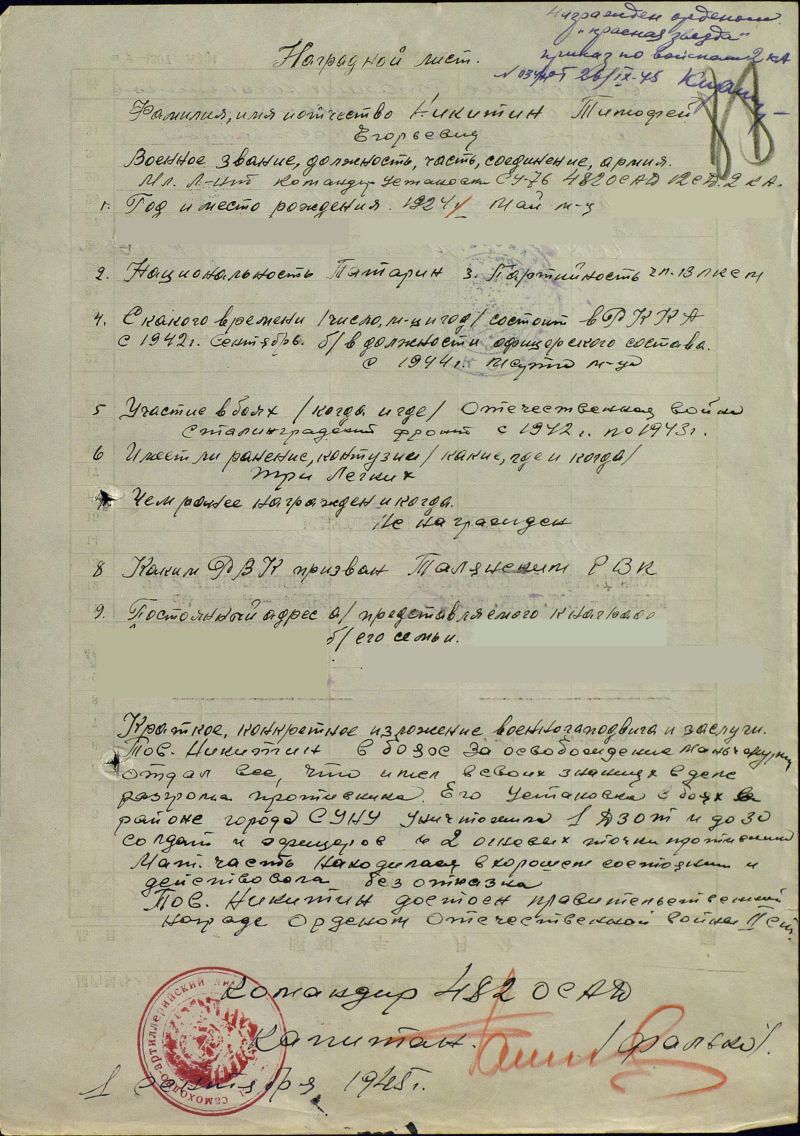 Награжден орденом
"Красная звезда"
приказ по войскам 2 КА
от 26/IX-45
Наградной лист.
Фамилия, имя и отчество Никитин Тимофей
Егорьевич
Военное звание, должность, часть, соединение, армия.
Мл. Л-нт Командир Установки СУ-76 482 ОСАД 12 СД. 2 КА.
1. Год и место рождения. 1924 г Май м-ц
2. Национальность Татарин 3. Партийность чл. ВЛКСМ
4. С какого времени /число, м-ц и год/ состоит в РККА
с 1942 г. Сентябрь. б/ в должности офицерского состава.
с 1944 г. м-ца
5 Участие в боях /когда и где/ Отечественная война
Сталинградский фронт с 1942 г. по 1943 г.
6 Имеет ли ранение, контузии / какие, где и когда/
три Легких
7 Чем ранее награжден и когда.
Не награжден
8 Каким РВК призван РВК
9. Постоянный адрес а/ представляемого к награде
б/ его семьи.
Краткое, конкретное изложение военного подвига и заслуги.
Тов. Никитин в боях за освобождение Маньчжурии
отдал все, что имел в своих знаниях в деле
разгрома противника. Его Установка в боях в
районе города СУНУ Уничтожила 1 ДЗОТ и до 30
солдат и офицеров и 2 огневых точки противника
Мат. часть находилась в хорошем состоянии и
действовала без отказна
Тов. Никитин достоен правительственной
награде Орденом Отечественной войны II ст.
Командир 482 ОСАД
Капитан. /Фалько/.
1 Сентября 1945 г.
самоходно-артиллерийский